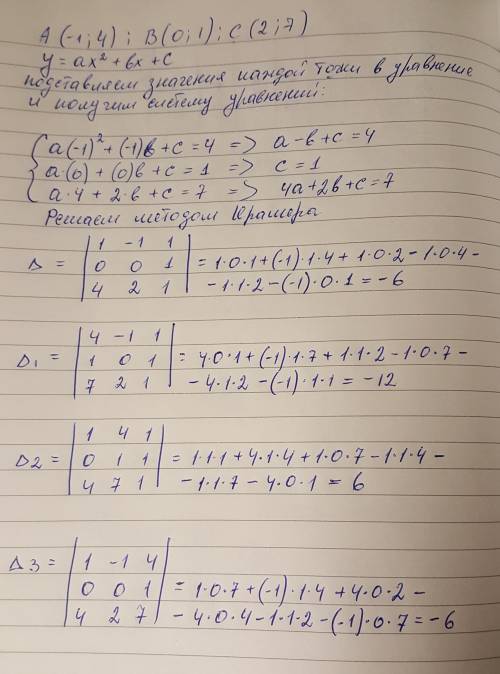 A (-1; 4) ; B(0; 1); C (2; 7)
y = ax² + bx + c
подставляем значения каждой точки в уравнение
и получим систему уравнений:
a(-1)² + (-1)b + c = 4 => a - b + c = 4
a·(0) + (0)b + c = 1 => c = 1
a·4 + 2·b + c = 7 => 4a + 2b + c = 7
Решаем методом Крамера
Δ = | 1 -1 1 |
| 0 0 1 | = 1·0·1 + (-1)·1·4 + 1·0·2 - 1·0·4 -
| 4 2 1 | - 1·1·2 - (-1)·0·1 = -6
Δ1 = | 4 -1 1 |
| 1 0 1 | = 4·0·1 + (-1)·1·7 + 1·1·2 - 1·0·7 -
| 7 2 1 | - 4·1·2 - (-1)·1·1 = -12
Δ2 = | 1 4 1 |
| 0 1 1 | = 1·1·1 + 4·1·4 + 1·0·7 - 1·1·4 -
| 4 7 1 | - 1·1·7 - 4·0·1 = 6
Δ3 = | 1 -1 4 |
| 0 0 1 | = 1·0·7 + (-1)·1·4 + 4·0·2 -
| 4 2 7 | - 4·0·4 - 1·1·2 - (-1)·0·7 = -6